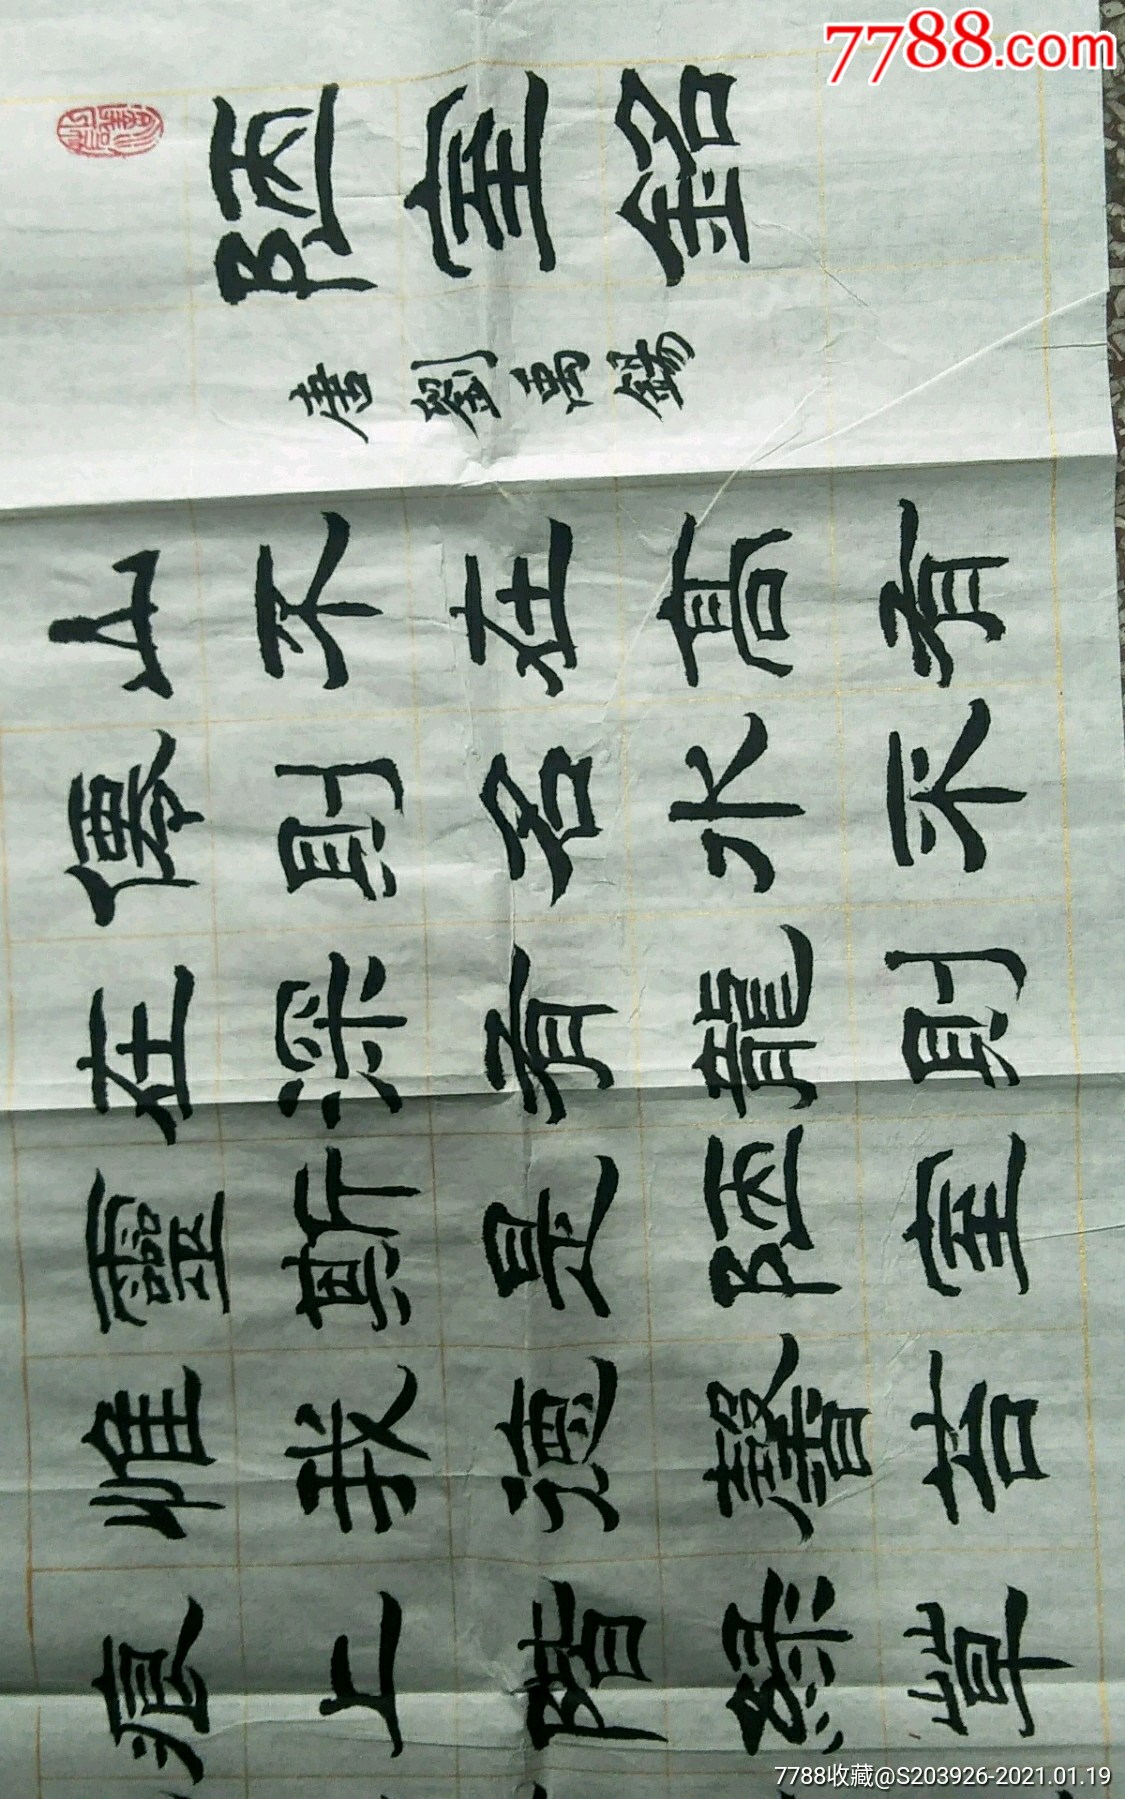 7788.com
陋室銘
唐劉禹錫
山不在高有
僊則名水不
在深有龍則
靈斯是陋室
惟我德馨苔
痕上階綠草
7788收藏@S203926-2021.01.19